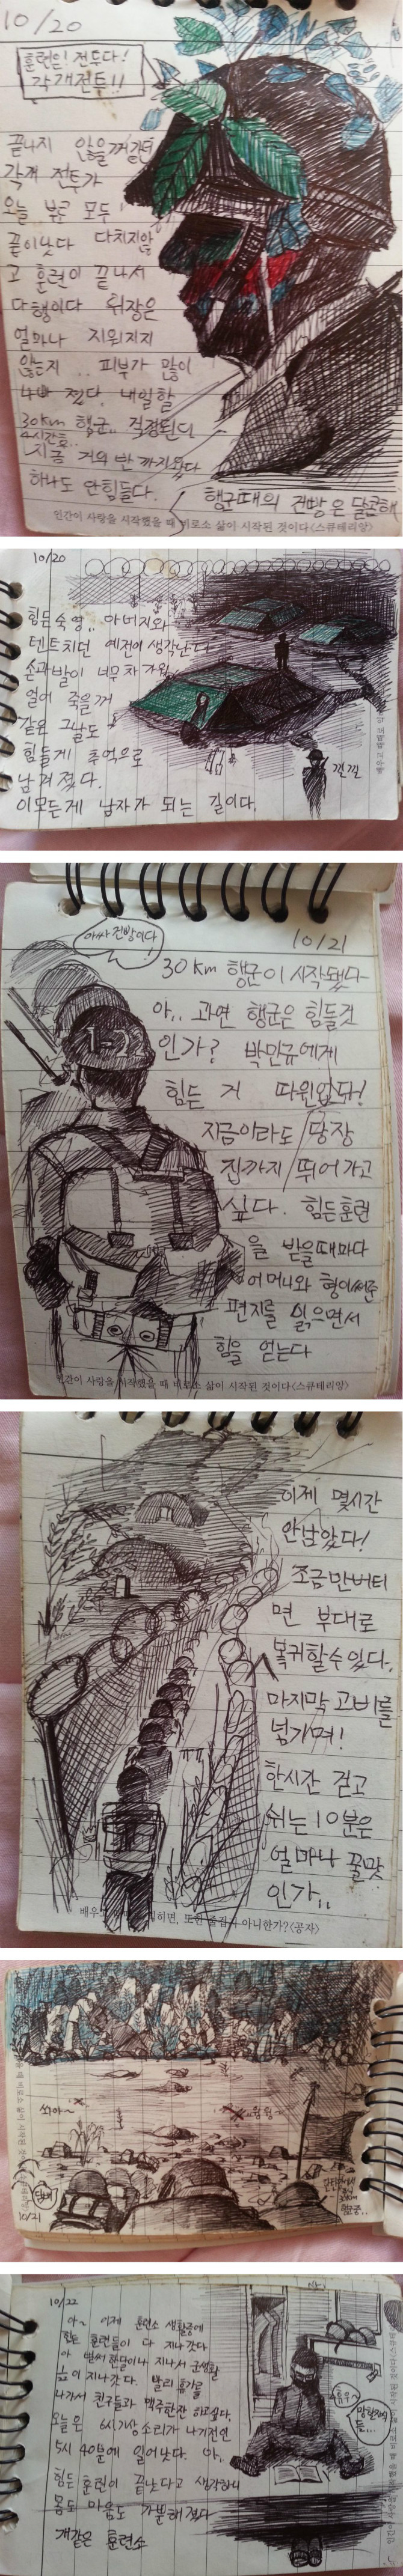 10/20
훈련은! 전투다!
각개전투!!
끝나지 않을꺼 같던
각개 전투가
오늘 부로 모두
끝이낫다 다치지않
고 훈련이 끝나서
다행이다 위장은
얼마나 지워지지
않는지 .. 피부가 많이
졌다. 내일할
30km 행군.. 걱정된다
4시간후..
지금 거의 반까지왔다
하나도 안힘들다.
행군때의 건빵은 달콤해
인간이 사랑을 시작했을 때 비로소 삶이 시작된 것이다<스큐테리양>
10/20
힘든숙영.. 아버지와
텐트치던 예전이 생각난다
손과발이 너무차가워
얼어 죽을꺼
같은 그날도
힘들게 추억으로
남겨졌다.
이모든게 남자가 되는 길이다.
낄낄
아싸 건빵이다
10/21
30km 행군이 시작됐다
1-22
아.. 과연 행군은 힘들것
인가? 박민규에게
힘든 거 따윈없다!
지금이라도 당장
집까지 뛰어가고
싶다. 힘든훈련
을 받을때마다
어머니와 형이써준
편지를 읽으면서
힘을 얻는다
인간이 사랑을 시작했을 때 비로소 삶이 시작된 것이다<스큐테리양>
이제 몇시간
안남았다!
조금만버티
면 부대로
복귀할수있다.
마지막 고비를
넘기며!
한시간 걷고
쉬는 10분은
얼마나 꿀맛
인가..
배우고 익히면, 또한 즐겁지 아니한가?<공자>
쏴아~
10/21
10/22
아~ 이제 훈련소 생활중에
힘든 훈련들이 다 지나갔다
아 벌써 한달이나 지나서 군생활
이 지나갔다. 빨리 휴가를
나가서 친구들과 맥주한잔 하고싶다.
오늘은 6시기상소리가 나기전인
5시 40분에 일어났다. 아.
힘든 훈련이 끝낫다고 생각하니
몸도 마음도 가뿐해졌다
개같은 훈련소
휴우~